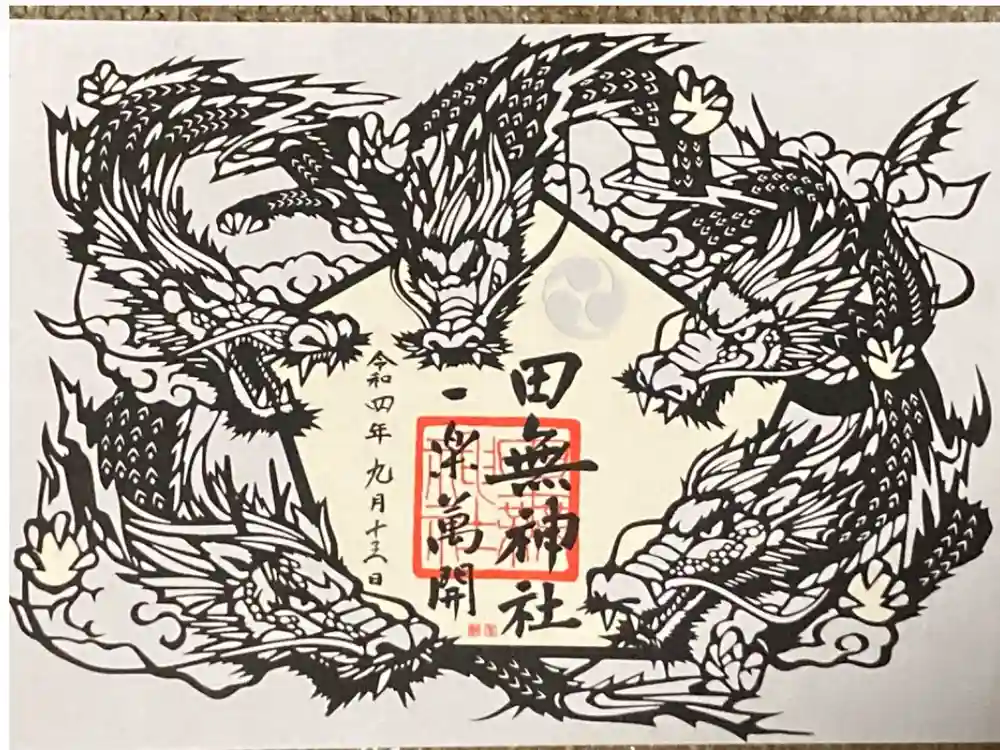 田無神社
一楽萬開
令和四年九月十三日